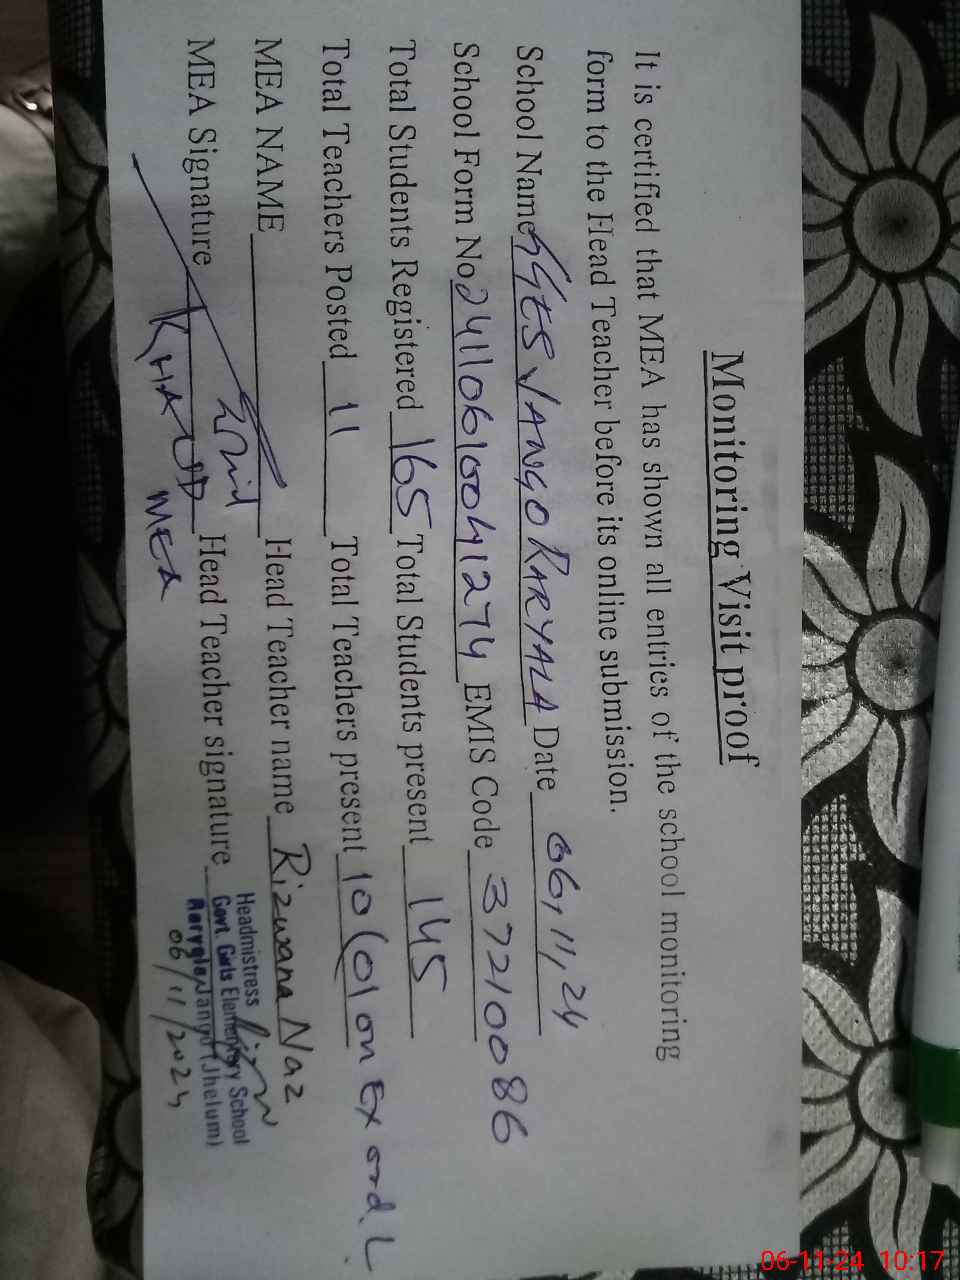 Monitoring Visit proof
It is certified that MEA has shown all entries of the school monitoring
form to the Head Teacher before its online submission.
School Name GGES NANGO RARYALA Date 06,11,24
School Form No 24110610041274 EMIS Code 37210086
Total Students Registered 165 Total Students present 145
Total Teachers Posted 11 Total Teachers present 10 (01 on Ex ord. L
MEA NAME Head Teacher name Rizwana Naz
MEA Signature Head Teacher signature
MEA
Headmistress
Govt. Girls Elementary School
(Jhelum)
06/11/2024
06-11-24 10:17